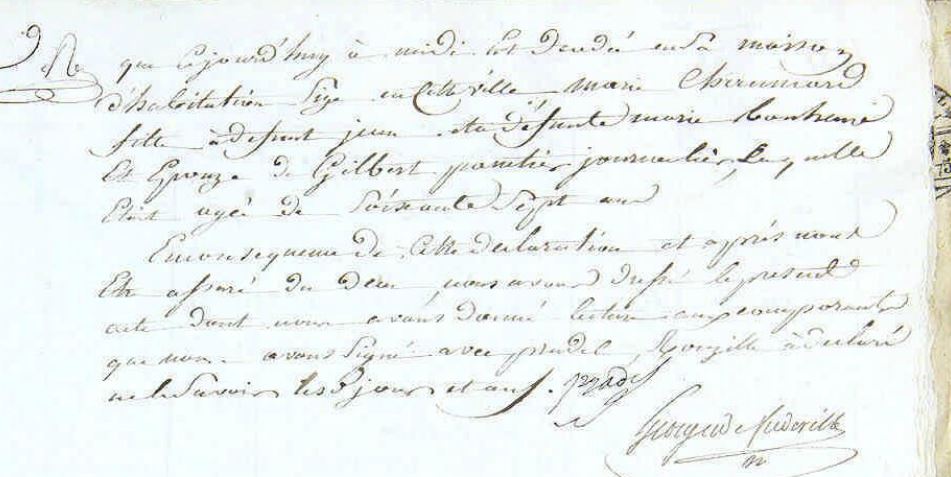 que cejourd'huy à midi Est Decedé en sa maison
d'habitation Size en Cette ville marie
fille à defunt jean et à défunte marie
Et Epouze de Gilbert journalier, Laquelle
Etoit agée de Soixante Sept ans
En consequence de Cette declaration et après nous
Etre assuré du deces, nous avons dressé le present
acte dont nous avons donné lecture aux comparants
que nous avons Signé avec pradel, à declaré
ne le Savoir les jour et an